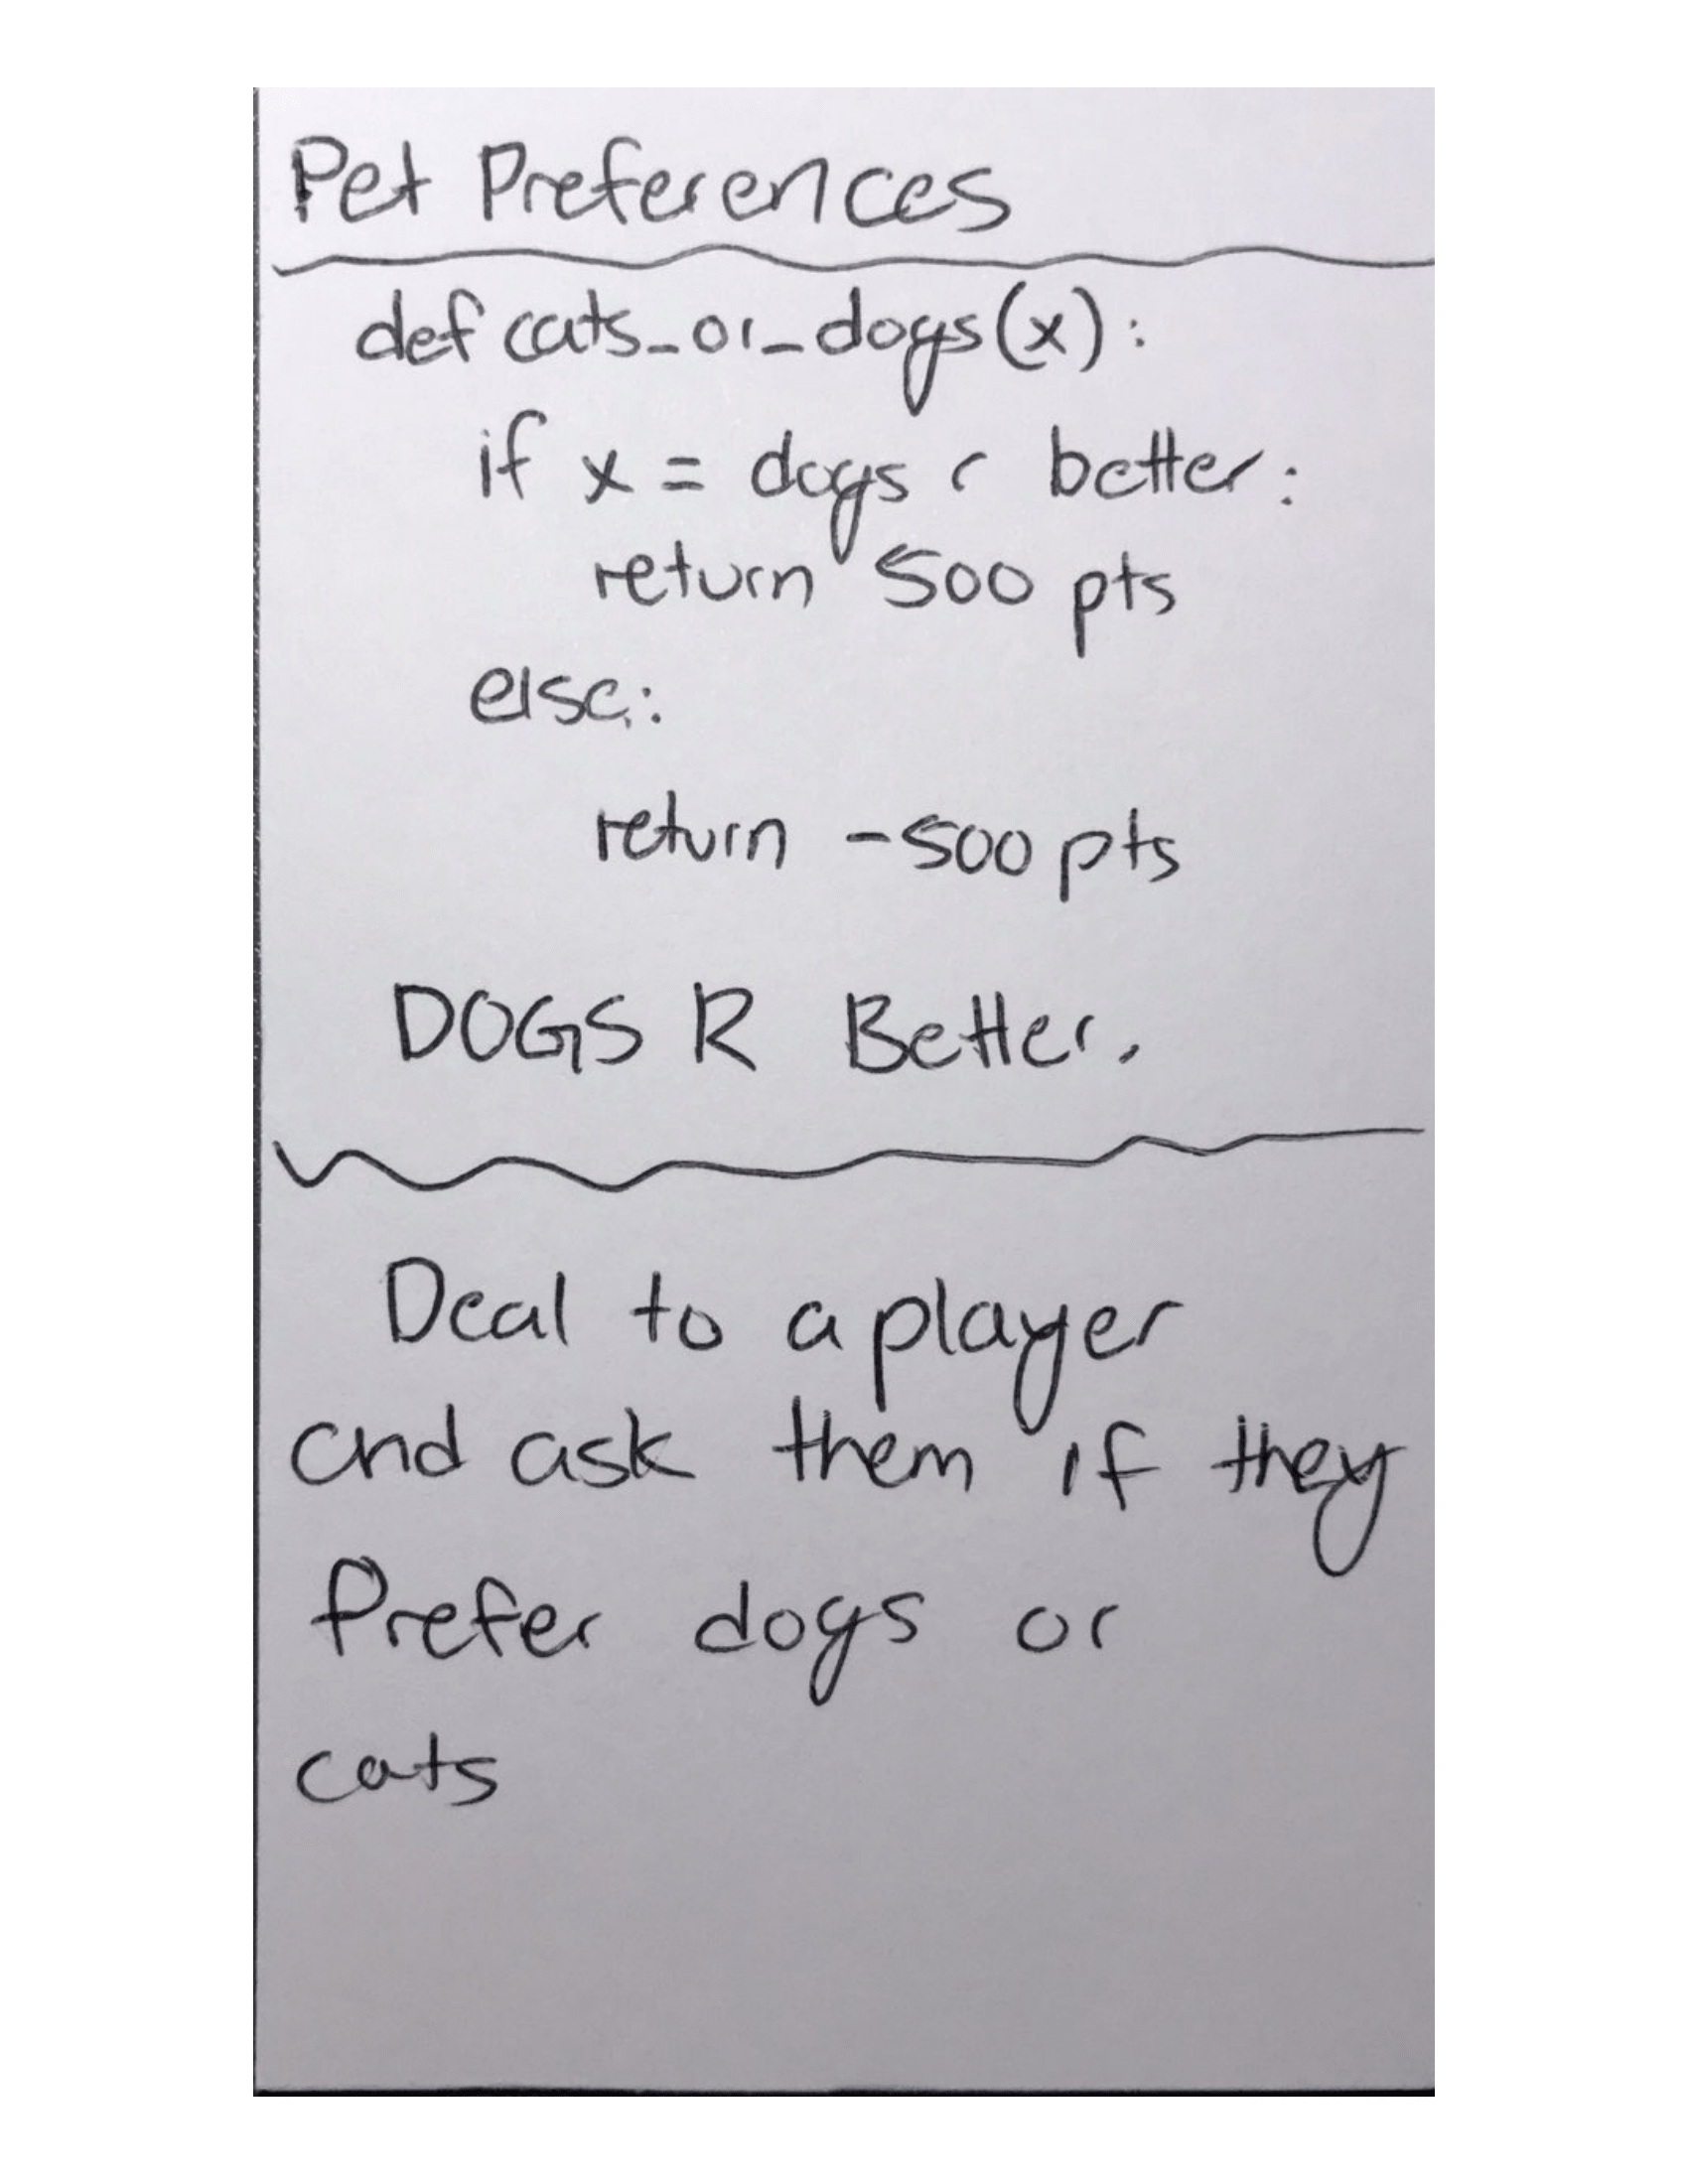 Pet Preferences
def cats_or_dogs(x):
if x = dogs r better:
return 500 pts
else:
return -500 pts
DOGS R Better.
Deal to a player
and ask them if they
Prefer dogs or
cats